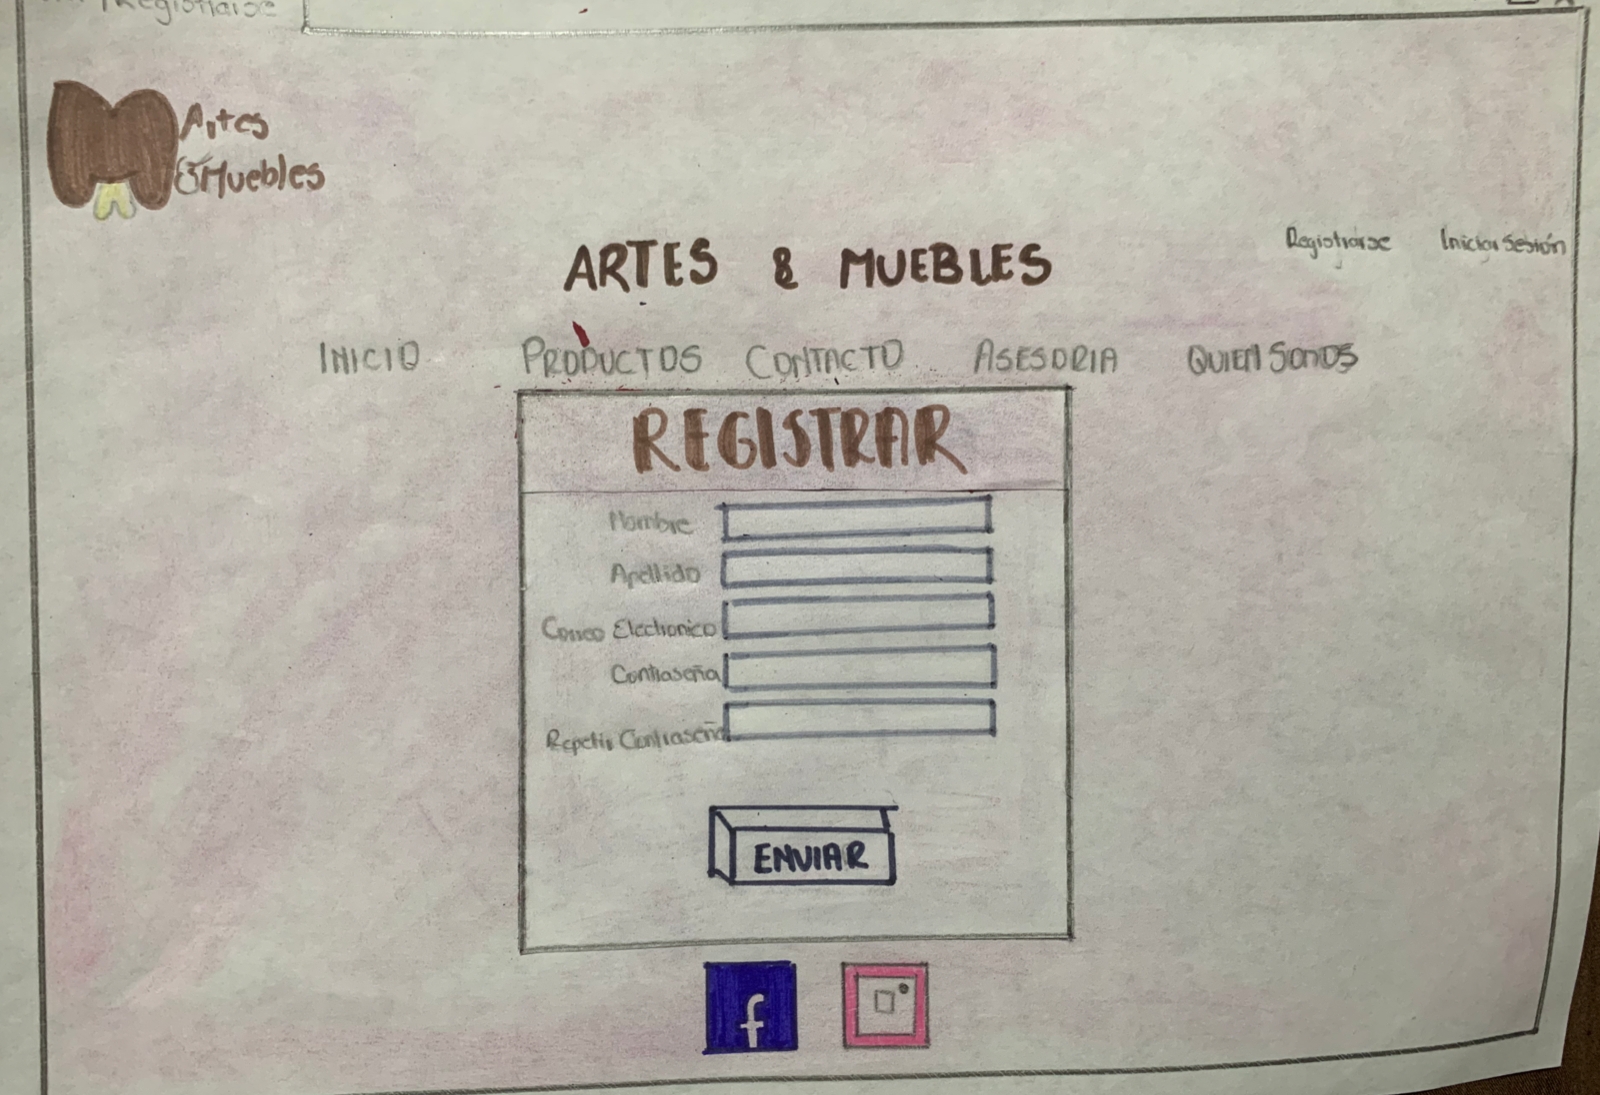 Registrarse
Artes
& Muebles
Registrarse Iniciar Sesión
ARTES & MUEBLES
INICIO PRODUCTOS CONTACTO ASESORIA QUIEN SOMOS
REGISTRAR
Nombre
Apellido
Correo Electronico
Contraseña
Repetir Contraseña
ENVIAR
f